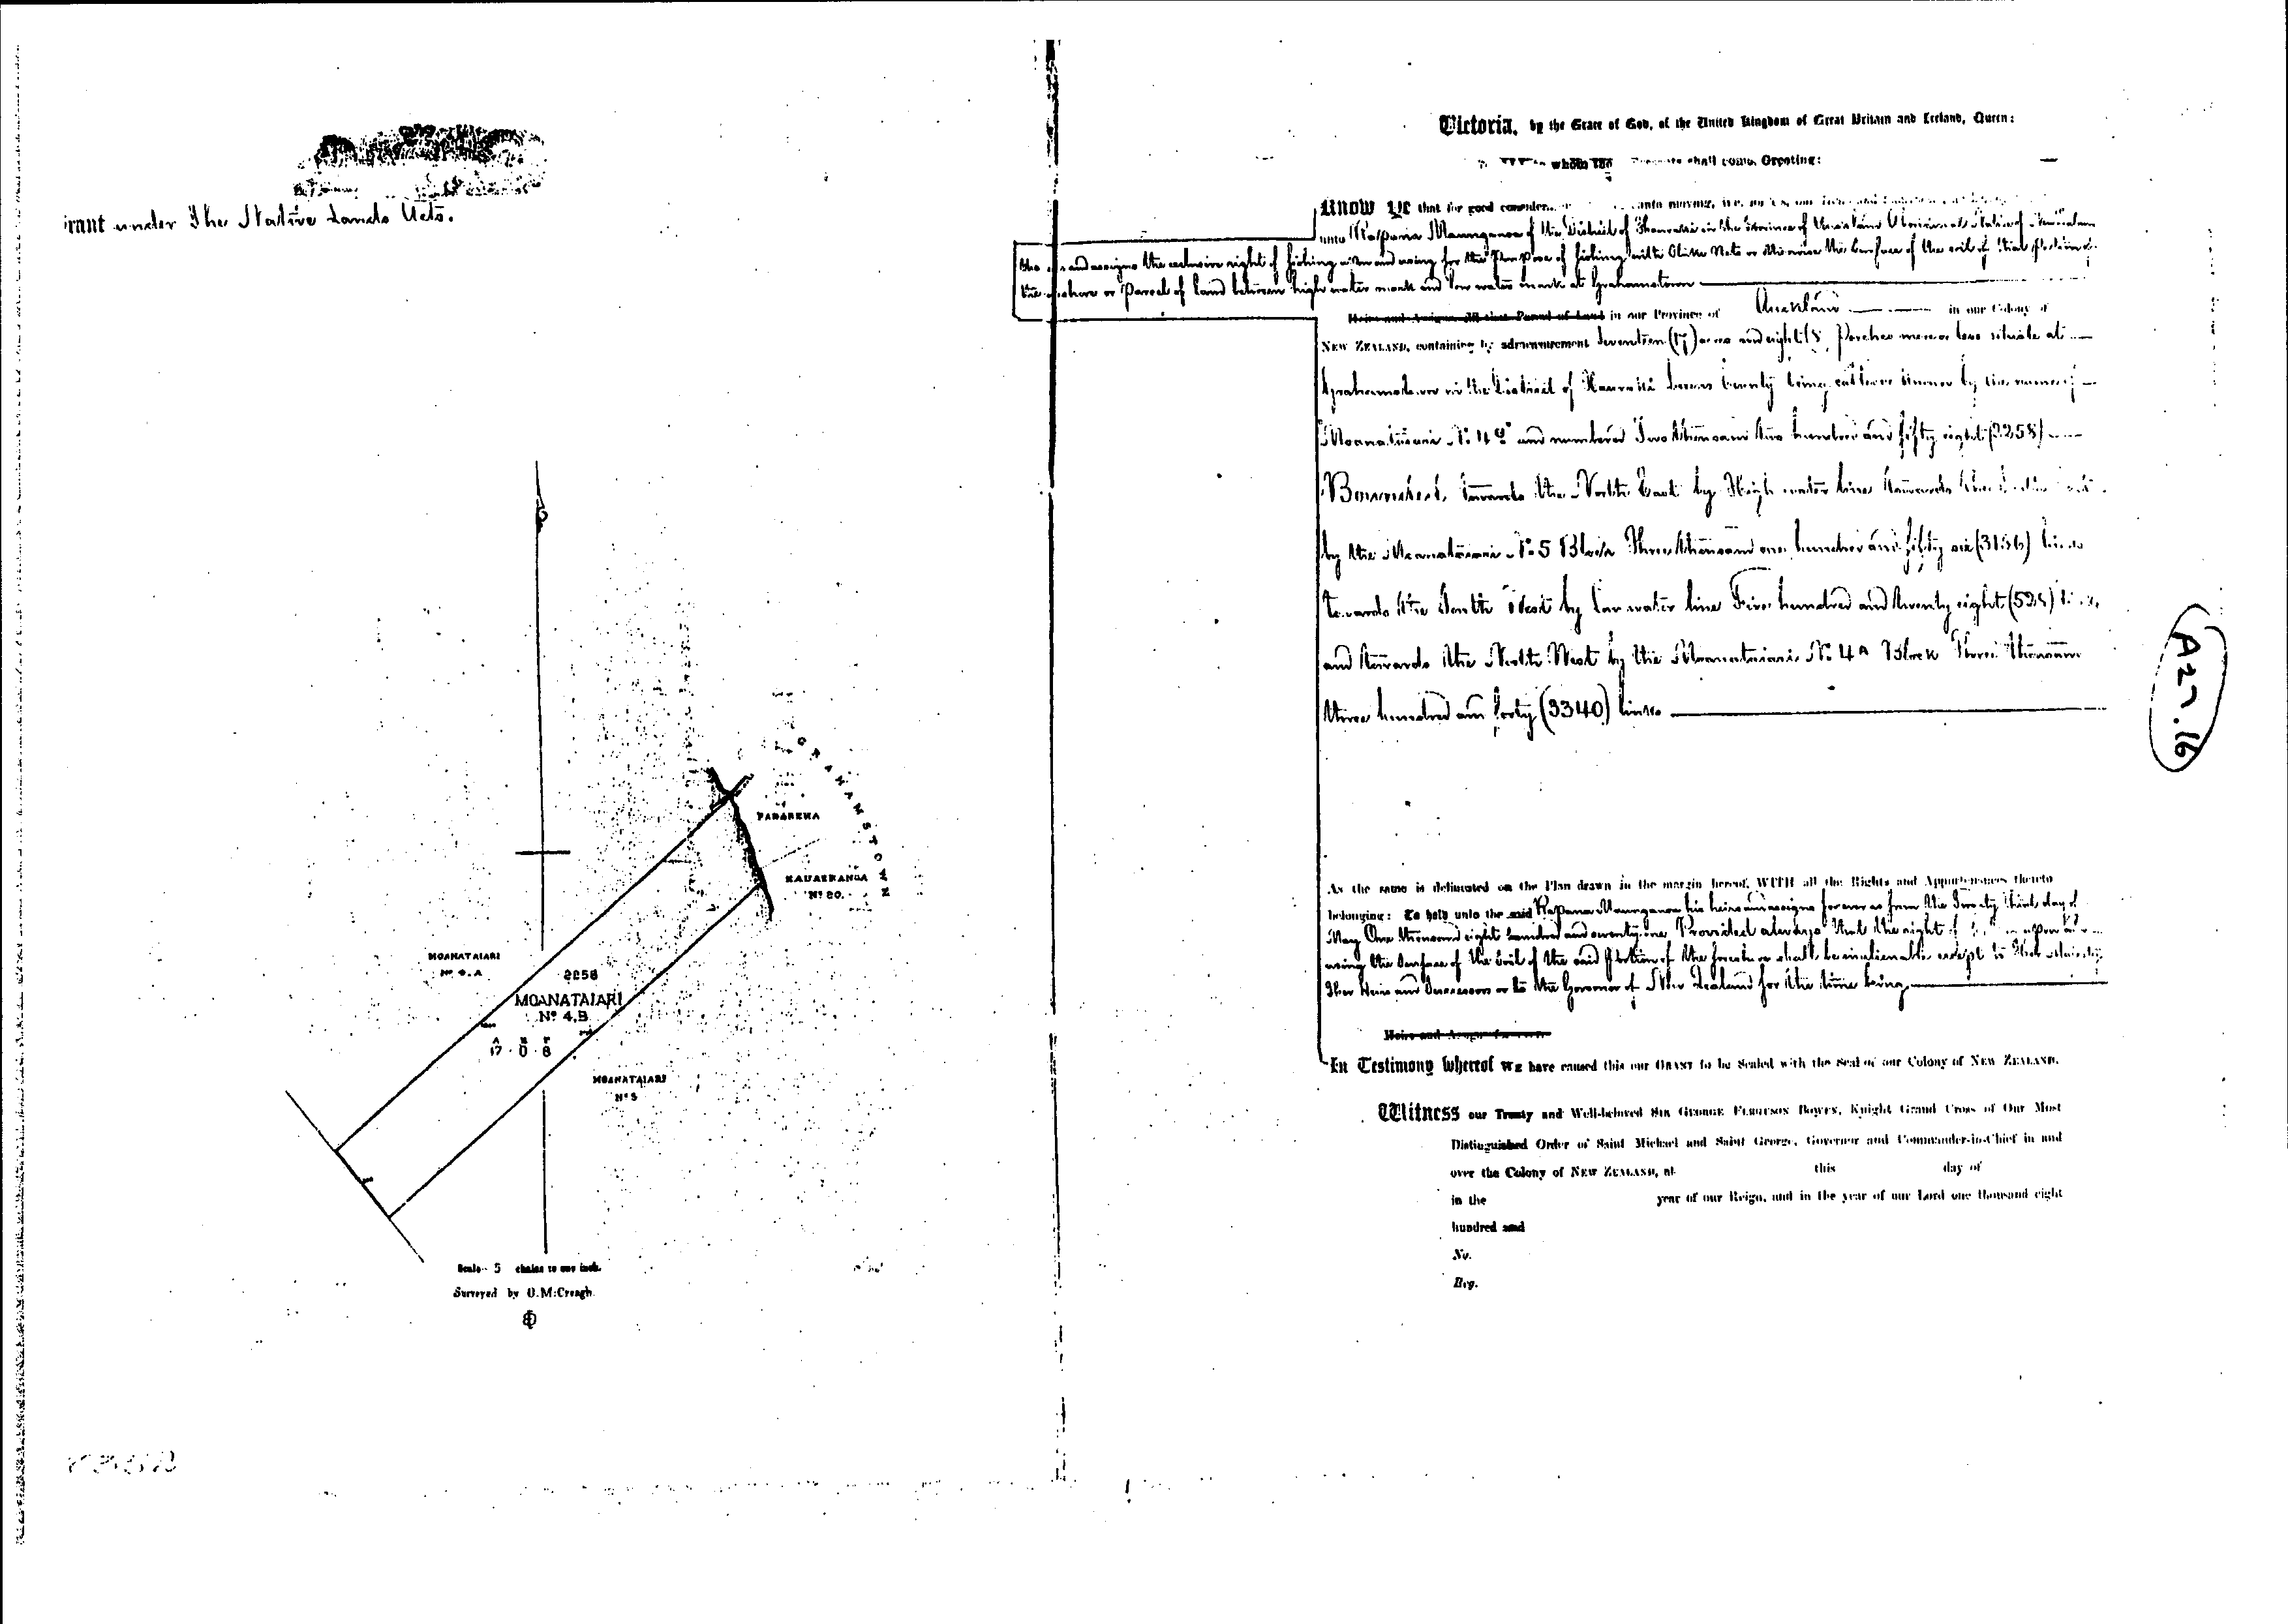 rant under The Native Lands Acts.
GRAHAMSTOWN
PARAREKA
KAUAERANGA
No 20.
MOANATAIARI
No 4.A
2258
MOANATAIARI
No 4.B
A R P
17 . 0 . 8
MOANATAIARI
No 5
Scale 5 chains to one inch.
Surveyed by O. McCreagh.
Victoria, by the Grace of God, of the United Kingdom of Great Britain and Ireland, Queen:
whom shall come, Greeting:
Know Ye that for good
unto of the District of in the Province of Auckland Aboriginal Native of
and assigns the exclusive right of fishing upon and using for the Purpose of fishing with Stake Nets or otherwise the Surface of the soil of that portion of
the or Parcel of land between high water mark and low water mark at Grahamstown
Heirs and Assigns All that Parcel of Land in our Province of Auckland in our Colony of
NEW ZEALAND, containing by admeasurement Seventeen (17) acres and eight (8) Perches more or less situate at
Grahamstown in the District of Hauraki County being called or known by the name of
Moanataiari No 4B and numbered Two thousand two hundred and fifty eight (2258)
Bounded towards the North East by High water line towards the
by the Moanataiari No 5 Block Three thousand one hundred and fifty six (3156) links
towards the South West by low water line Five hundred and twenty eight (528) links
and towards the North West by the Moanataiari No 4A Block Three thousand
three hundred and forty (3340) links
As the same is delineated on the Plan drawn in the margin hereof, WITH all the Rights and Appurtenances thereto
belonging: To hold unto the said his heirs and assigns for ever as from the Twenty third day of
May One thousand eight hundred and seventy one Provided always that the right of upon and
using the Surface of the Soil of the said Portion of the foreshore shall be inalienable except to Her Majesty
Her Heirs and Successors or to the Governor of New Zealand for the time being
Heirs and Assigns for ever.
In Testimony Whereof We have caused this our GRANT to be Sealed with the Seal of our Colony of NEW ZEALAND.
Witness our Trusty and Well-beloved SIR GEORGE FERGUSON BOWEN, Knight Grand Cross of Our Most
Distinguished Order of Saint Michael and Saint George, Governor and Commander-in-Chief in and
over the Colony of NEW ZEALAND, at this day of
in the year of our Reign, and in the year of our Lord one thousand eight
hundred and
No.
Reg.
A27.16